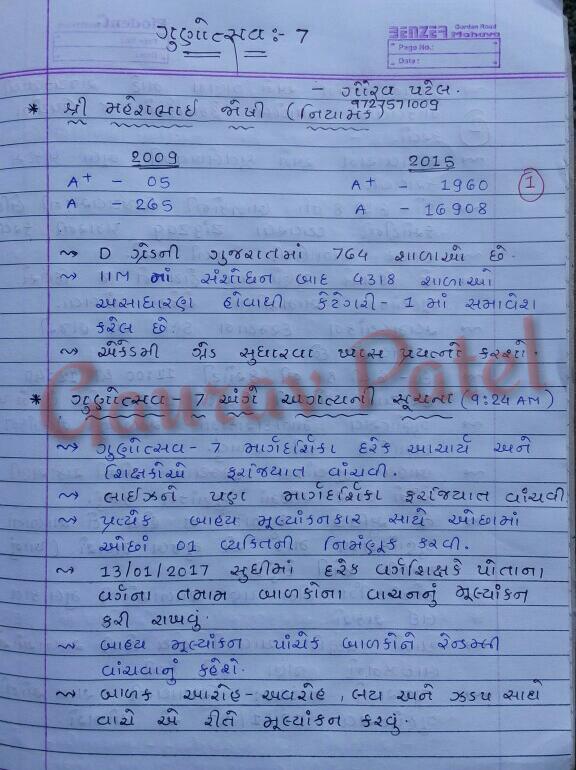 ગુણોત્સવ:- 7
BENZER Gurdan Road Mahuva
Page No.:
Date:
- ગૌરવ પટેલ.
9727571009
* શ્રી મહેશભાઇ જોષી (નિયામક)
2009 2015
A+ - 05 A+ - 1960
A - 265 A - 16908
1
~> D ગ્રેડની ગુજરાતમાં 764 શાળાઓ છે.
~> IIM માં સંશોધન બાદ 4318 શાળાઓ
અસાધારણ હોવાથી કેટેગરી- 1 માં સમાવેશ
કરેલ છે.
~> એકેડમી ગ્રેડ સુધારવા ખાસ પ્રયત્નો કરશો.
* ગુણોત્સવ - 7 અંગે અગત્યની સૂચના (9:24 AM)
~> ગુણોત્સવ- 7 માર્ગદર્શિકા દરેક આચાર્ય અને
શિક્ષકોએ ફરજિયાત વાંચવી.
~> લાઇઝને પણ માર્ગદર્શિકા ફરજિયાત વાંચવી
~> પ્રત્યેક બાહ્ય મૂલ્યાંકનકાર સાથે ઓછામાં
ઓછાં 01 વ્યકિતની નિમણૂક કરવી.
~> 13/01/2017 સુધીમાં દરેક વર્ગશિક્ષકે પોતાના
વર્ગના તમામ બાળકોના વાચનનું મૂલ્યાંકન
કરી રાખવું.
~> બાહ્ય મૂલ્યાંકન પાંચેક બાળકોને રેન્ડમલી
વાંચવાનું કહેશે.
~> બાળક આરોહ-અવરોહ, લય અને ઝડપ સાથે
વાંચે એ રીતે મૂલ્યાંકન કરવું.
Gaurav Patel